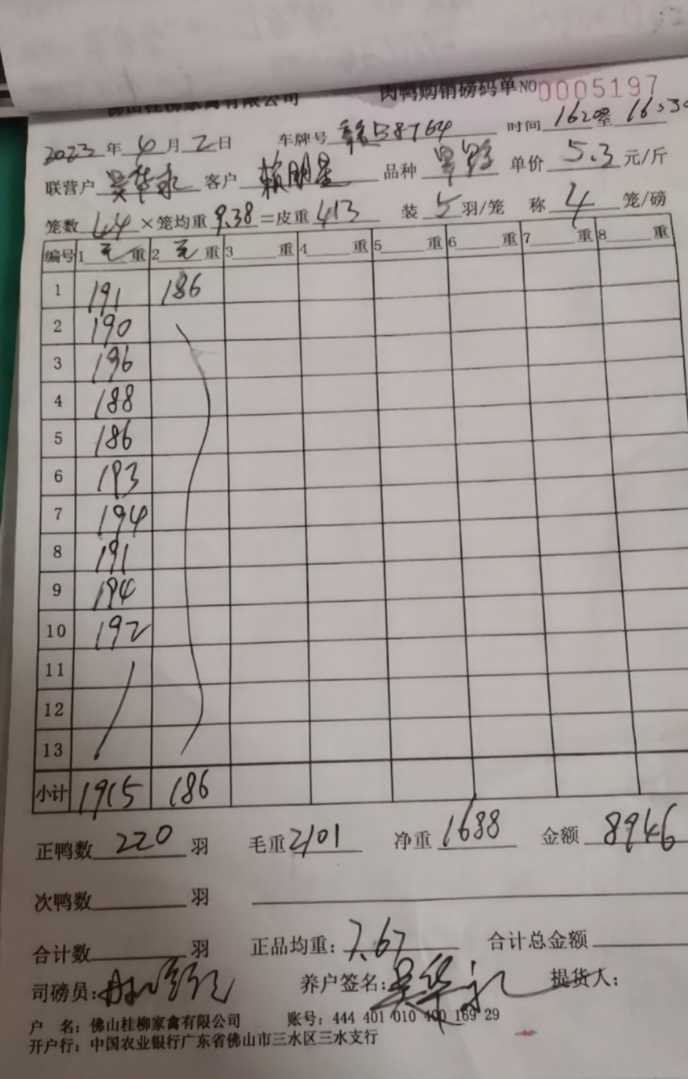 佛山桂柳家禽有限公司 肉鸭购销磅码单 NO 0005197
2023年4月2日 车牌号 58764 时间 1620至
联营户 吴华永 客户 赖明星 品种 单价 5.3 元/斤
笼数 44 ×笼均重 9.38 =皮重 413 装 5 羽/笼 称 4 笼/磅
编号 1 毛 重 2 毛 重 3 重 4 重 5 重 6 重 7 重 8 重
1 191 186
2 190
3 196
4 188
5 186
6 193
7 194
8 191
9 194
10 192
11
12
13
小计 1915 186
正鸭数 220 羽 毛重 2101 净重 1688 金额 8946
次鸭数 羽
合计数 羽 正品均重: 7.67 合计总金额
司磅员: 养户签名: 吴华永 提货人:
户 名: 佛山桂柳家禽有限公司 账号: 444 401 010 400 169 29
开户行: 中国农业银行广东省佛山市三水区三水支行